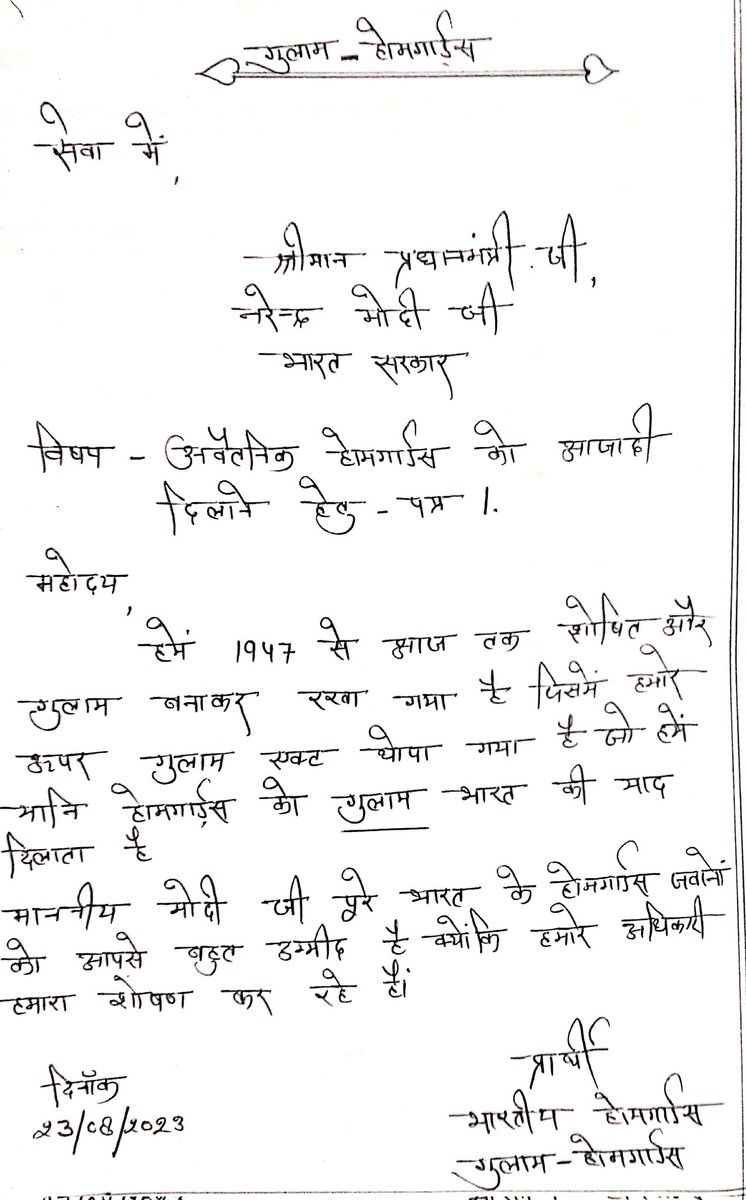 गुलाम - होमगार्ड्स
सेवा में,
श्रीमान प्रधानमंत्री जी,
नरेन्द्र मोदी जी
भारत सरकार
विषय - अवैतनिक होमगार्डस को आजादी
दिलाने हेतु - पत्र ।.
महोदय,
हमें 1947 से आज तक शोषित और
गुलाम बनाकर रखा गया है जिसमें हमारे
ऊपर गुलाम एक्ट थोपा गया है जो हमें
यानि होमगार्ड्स को गुलाम भारत की याद
दिलाता है
माननीय मोदी जी पूरे भारत के होमगार्डस जवानों
को आपसे बहुत उम्मीद है क्योंकि हमारे अधिकारी
हमारा शोषण कर रहे हैं।
प्रार्थी
दिनाँक
भारतीय होमगार्डस
23/08/2023
गुलाम - होमगार्डस